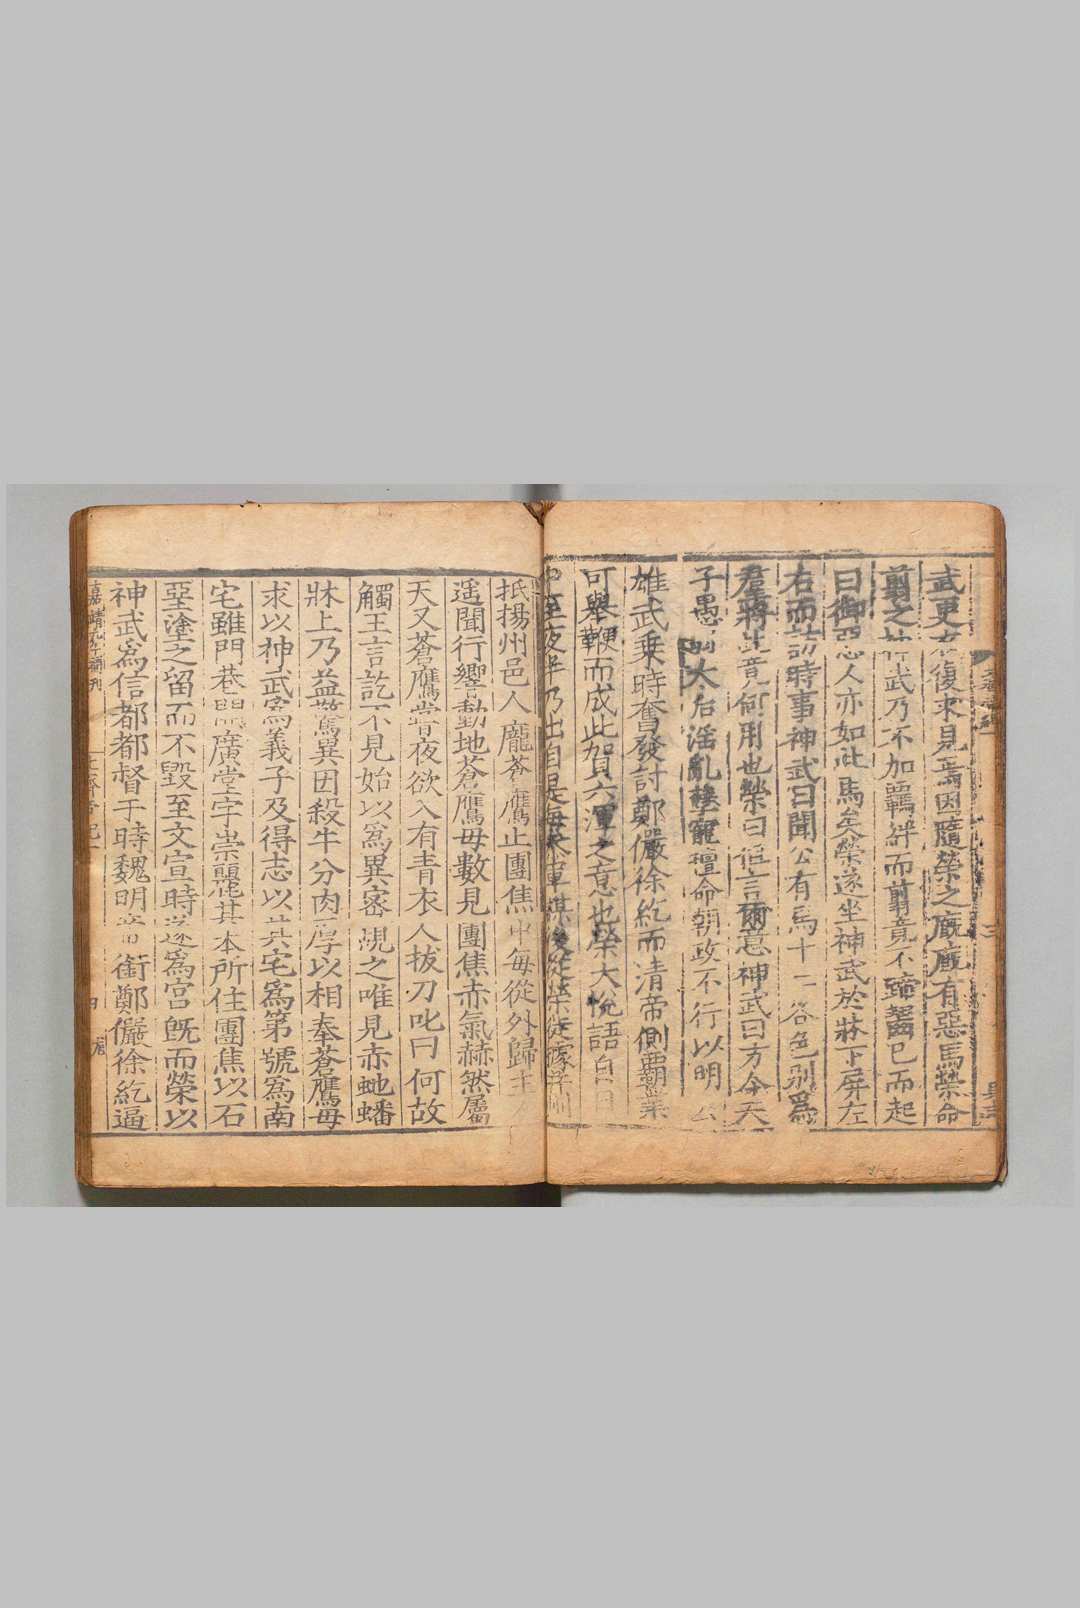 武更衣復求見焉因隨榮之廐廐有惡馬榮命
翦之神武乃不加羈絆而翦竟不蹄齧已而起
曰御惡人亦如此馬矣榮遂坐神武於牀下屏左
右而訪時事神武曰聞公有馬十二谷色別爲
羣將此竟何用也榮曰但言爾意神武曰方今天
子愚弱太后淫亂孽寵擅命朝政不行以明公
雄武乘時奮發討鄭儼徐紇而清帝側霸業
可舉鞭而成此賀六渾之意也榮大悅語自日
中至夜半乃出自是每參軍謀後從榮徙據并州
抵揚州邑人龐蒼鷹止團焦中每從外歸主人
遥聞行響動地蒼鷹母數見團焦赤氣赫然屬
天又蒼鷹嘗夜欲入有青衣人拔刀叱曰何故
觸王言訖不見始以爲異密覘之唯見赤虵蟠
牀上乃益驚異因殺牛分肉厚以相奉蒼鷹母
求以神武爲義子及得志以其宅爲第號爲南
宅雖門巷開廣堂宇崇麗其本所住團焦以石
堊塗之留而不毁至文宣時遂爲宮旣而榮以
神武爲信都都督于時魏明帝銜鄭儼徐紇逼
嘉靖九年補刊